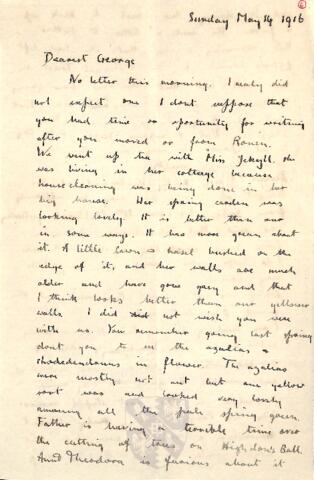 Sunday May 14 1916
Dearest George
No letter this morning. I really did
not expect one I dont suppose that
you had time or oportunity for writing
after you moved or from Rouen.
We went up tea with Miss Jekyll. she
was living in her cottage because
housecleaning was being done in her
big house. Her spring garden was
looking lovely. It is better than our
in some ways. It has more green about
it. A little lawn & hasel bushes on the
edge of it, and her walls are much
older and have gone grey and that
I think looks better than our yellower
walls. I did not wish you were
with us. You remember going last spring
dont you to see the azalias &
rhododendrons in flower. The azalias
were mostly not out but one yellow
sort was and looked very lovely
among all the pale spring green.
Father is having a terrible time over
the cutting of trees on Highdown Ball.
Aunt Theodora is furious about it